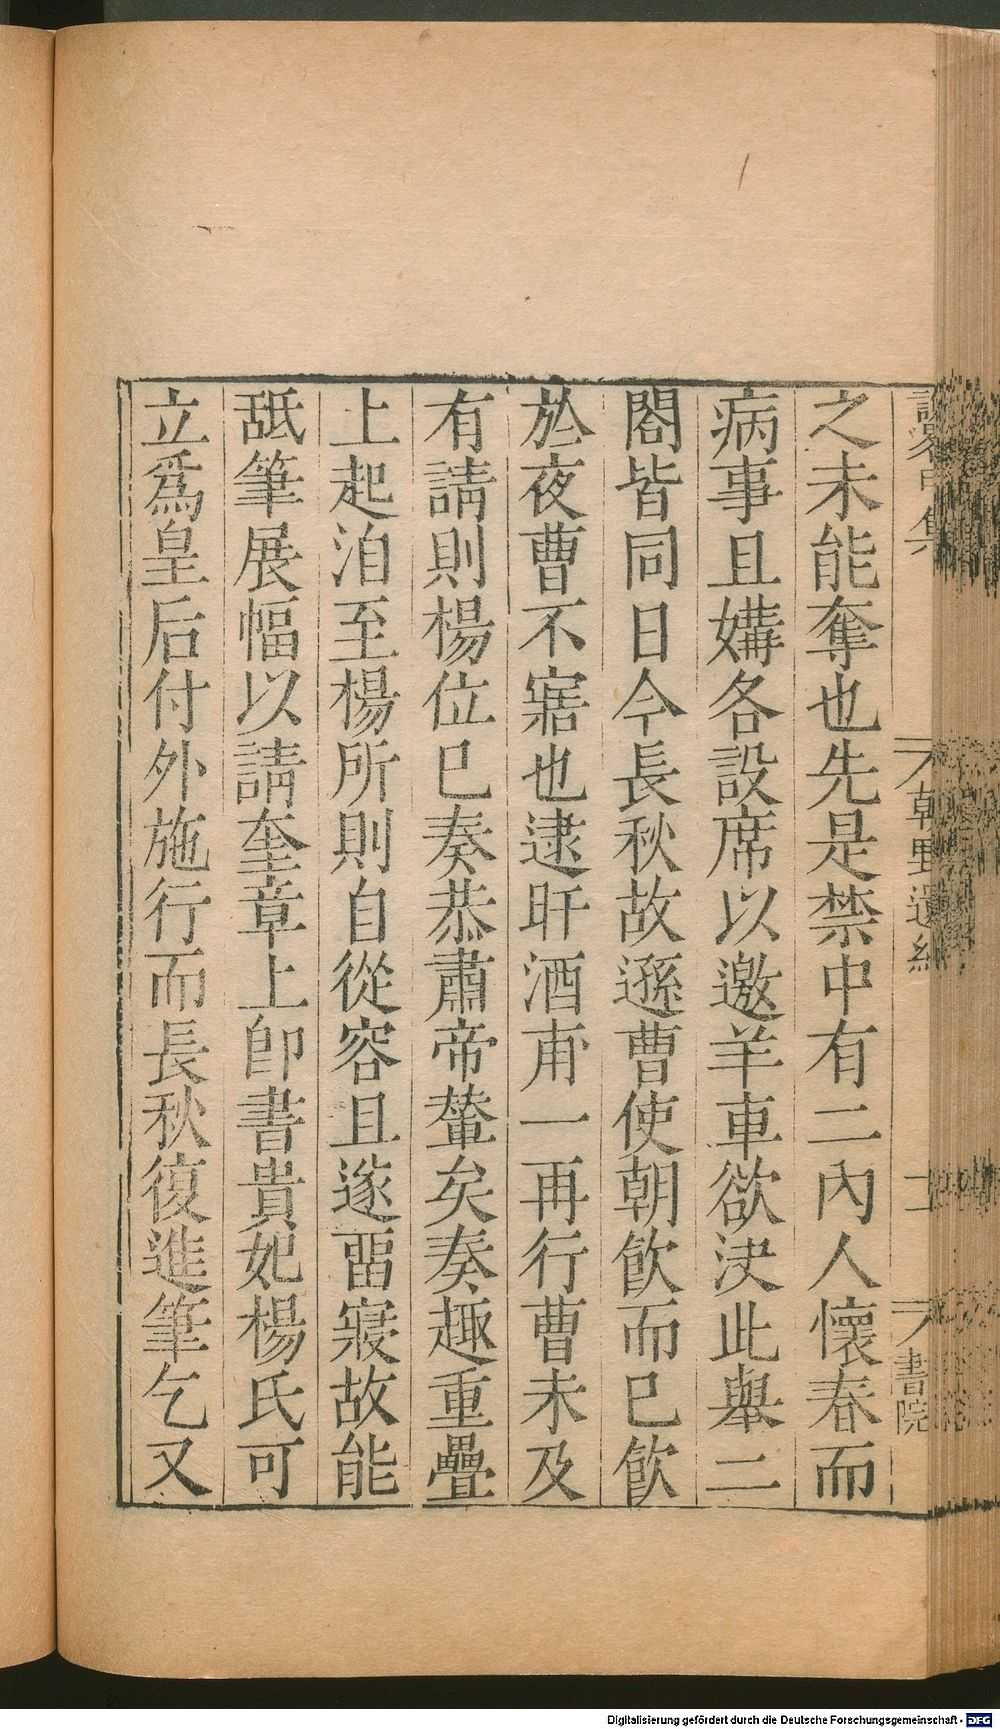 之未能奪也先是禁中有二內人懷春而
病事且媾各設席以邀羊車欲決此舉二
閤皆同日今長秋故遜曹使朝飲而已飲
於夜曹不寤也逮旰酒甫一再行曹未及
有請則楊位已奏恭肅帝輦矣奏趣重疊
上起洎至楊所則自從容且遂畱寢故能
舐筆展幅以請奎章上卽書貴妃楊氏可
立爲皇后付外施行而長秋復進筆乞又
集
朝野遺紀
十二
書院
Digitalisierung gefördert durch die Deutsche Forschungsgemeinschaft - DFG